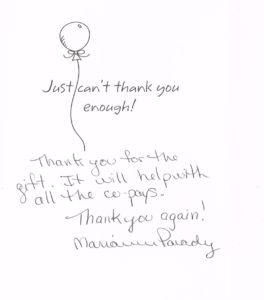 Just can't thank you
enough!
Thank you for the
gift. It will help with
all the co-pays.
Thank you again!